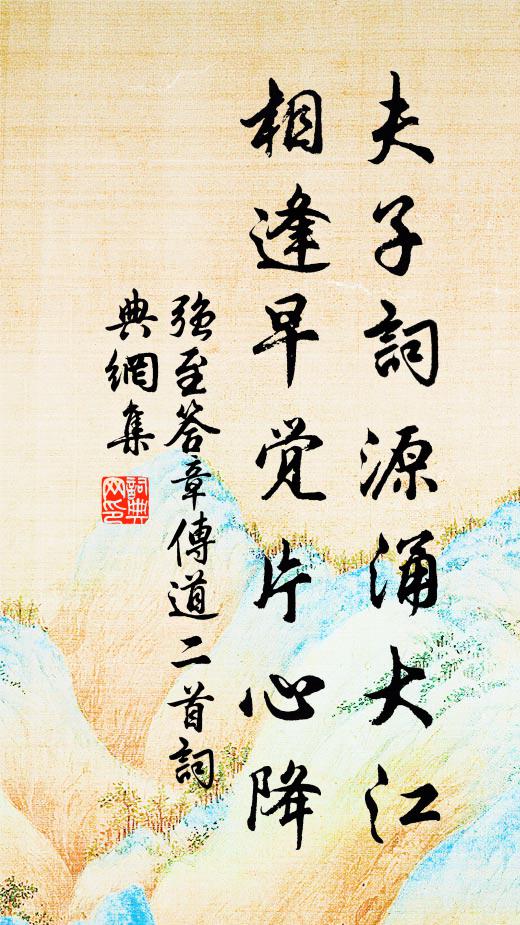 夫子詞源涌大江
相逢早觉片心降
强至答章傳道二首詞
典網集
詞典
网印